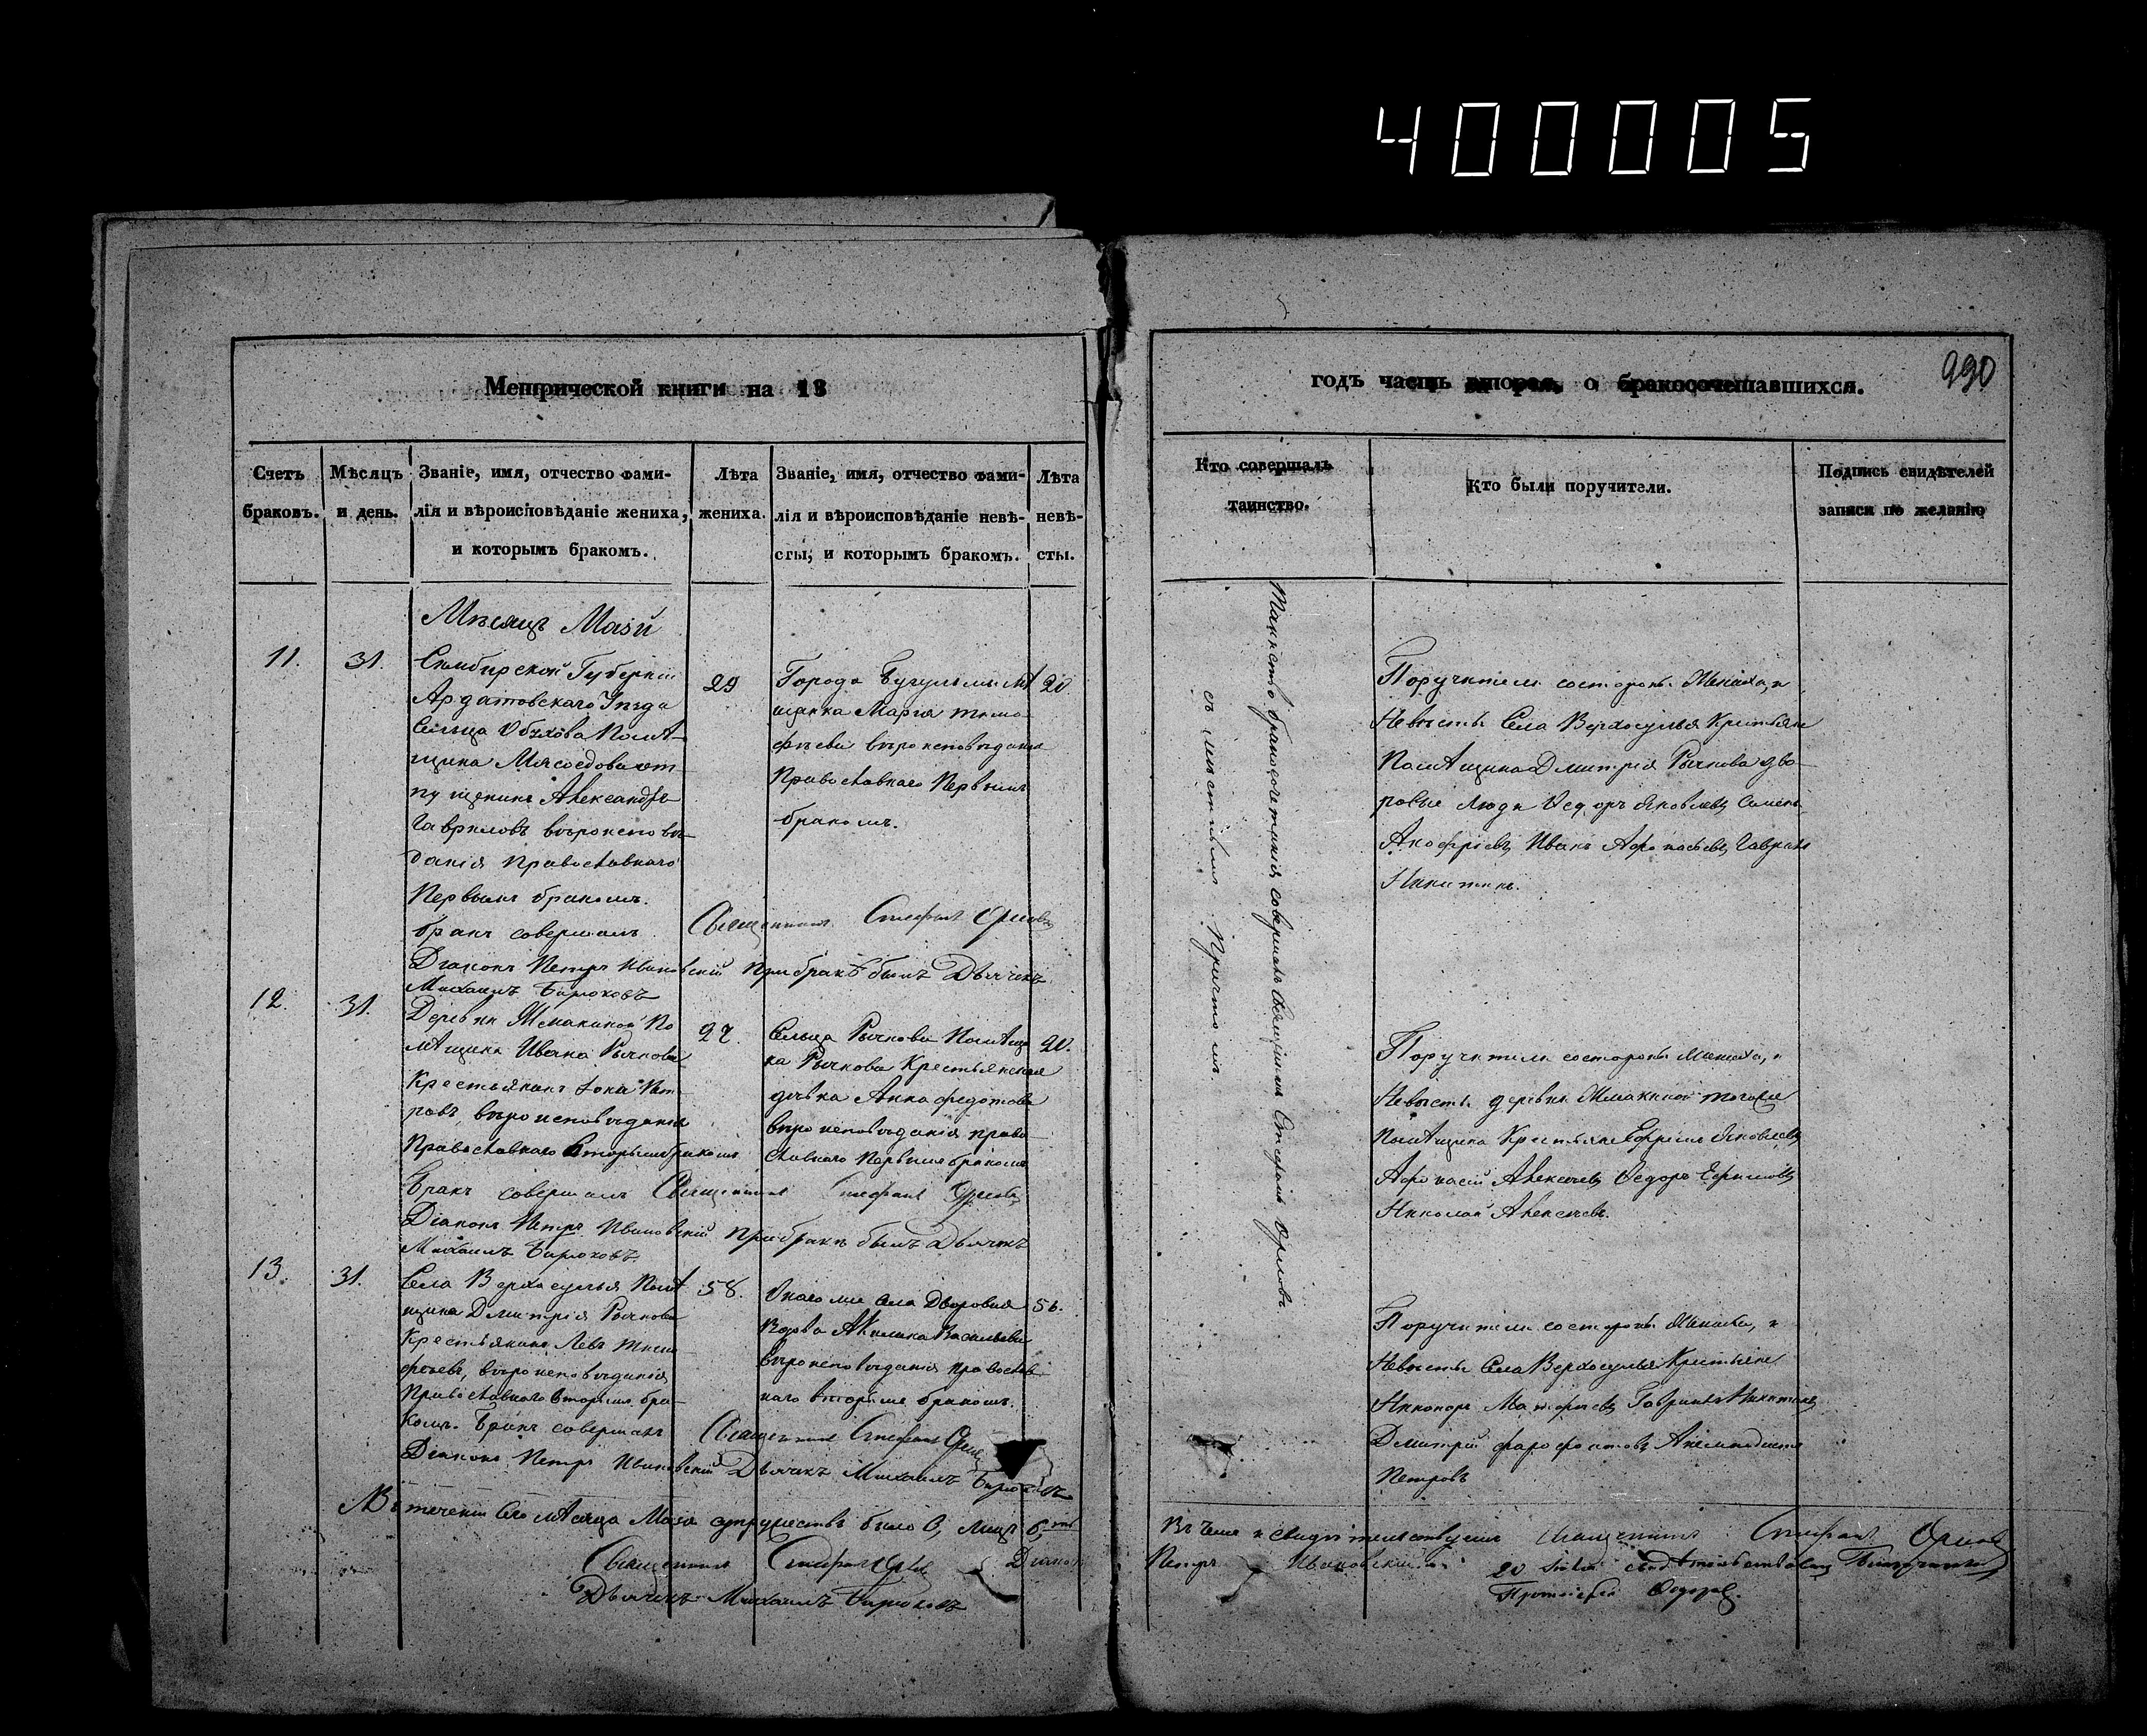 400005
Метрической книги на 18
годъ часть вторая, о бракосочетавшихся.
990
Счетъ браковъ.
Мѣсяцъ и день.
Званіе, имя, отчество фами-
лія и вѣроисповѣданіе жениха,
и которымъ бракомъ.
Лѣта
жениха.
Званіе, имя, отчество фами-
лія и вѣроисповѣданіе невѣ-
сты, и которымъ бракомъ.
Лѣта
невѣ-
сты.
Кто совершалъ
таинство.
Кто были поручители.
Подпись свидѣтелей
записи по желанію
Мѣсяцъ Маій
11.
31.
Симбирской Губерніи
Ардатовскаго Уѣзда
Сельца Обухова Помѣ-
щика Мясоедова от-
пущеникъ Александръ
Гавриловъ вѣроисповѣ-
данія Православнаго
Первымъ бракомъ.
бракъ совершалъ Священникъ Стефанъ Орловъ
Діаконъ Петръ Ивановскій При бракѣ былъ Дьячекъ
Михаилъ Бирюковъ
29
Города Бугульмы мѣ
щанка Марія Тимо-
фѣева вѣроисповѣданія
Православнаго Первымъ
бракомъ.
20
12.
31.
Деревни Шмакиной По
мѣщика Ивана Рычкова
Крестьянинъ Іона Пет-
ровъ, вѣроисповѣданія
Православнаго Вторымъ бракомъ
Бракъ совершалъ Священникъ Стефанъ Орловъ
Діаконъ Петръ Ивановскій При бракѣ былъ Дьячекъ
Михаилъ Бирюковъ
27.
Сельца Рычкова Помѣщи
ка Рычкова Крестьянская
дѣвка Анна Федотова
вѣроисповѣданія право-
славнаго Первымъ бракомъ
20.
13.
31.
Села Верхосулья Помѣ
щика Дмитрія Рычкова
Крестьянинъ Левъ Тимо-
феевъ, вѣроисповѣданія
Православнаго Вторымъ бра-
комъ. Бракъ совершалъ Священникъ Стефанъ
Діаконъ Петръ Ивановскій Дьячекъ Михаилъ Бирюковъ
58.
Онаго же села Дворовая
Вдова Акилина Васильева
вѣроисповѣданія православ
наго вторымъ бракомъ.
Въ теченіи сего мѣсяца Маія супружествъ было 3, лицъ 6,
Священникъ Стефанъ Орловъ Діаконъ
Дьячекъ Михаилъ Бирюковъ
Таинство бракосочетанія совершалъ Священникъ Стефанъ Орловъ
съ мѣстнымъ Причтомъ.
Поручители со стороны Жениха, и
Невѣсты Села Верхосулья Крестьяне
Помѣщика Дмитрія Рычкова дво-
ровые люди Ѳедоръ Яковлевъ Семенъ
Анофріевъ Иванъ Афонасьевъ Гаврила
Никитинъ.
Поручители со стороны Жениха, и
Невѣсты деревни Шмакиной тогоже
Помѣщика Крестьяне Ефремъ Яковлевъ
Афонасій Алексѣевъ Ѳедоръ Ефимовъ
Николай Алексѣевъ.
Поручители со стороны Жениха, и
Невѣсты Села Верхосулья Крестьяне
Никоноръ Матфѣевъ Гаврила Никитинъ
Дмитрій
Петровъ
Въ чемъ и свидѣтельствуемъ Священникъ Стефанъ Орловъ
Петръ Ивановскій
20 Іюля свидѣтельствовалъ Благочинный
Протоіерей